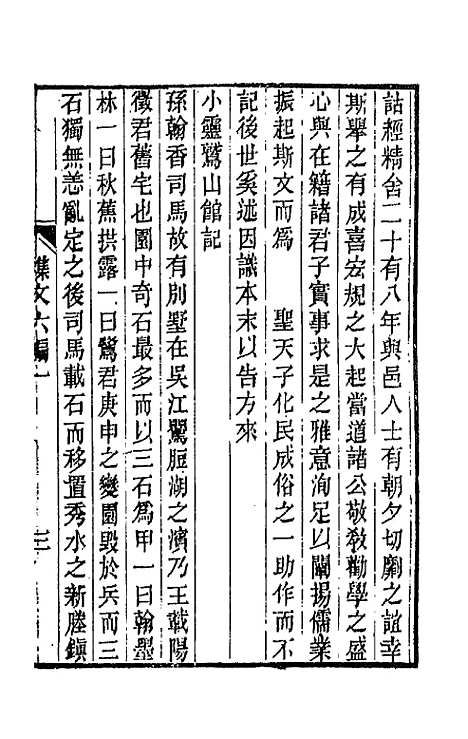 詁經精舍二十有八年與邑人士有朝夕切劘之誼幸
斯舉之有成喜宏規之大起當道諸公敬敎勸學之盛
心與在籍諸君子實事求是之雅意洵足以闡揚儒業
振起斯文而爲 聖天子化民成俗之一助作而不
記後世奚述因識本末以告方來
小靈鷲山館記
孫翰香司馬故有別墅在吳江鶯脰湖之濱乃王載陽
徵君舊宅也園中奇石最多而以三石爲甲一曰翰墨
林一曰秋蕉拱露一曰鷺君庚申之變園毀於兵而三
石獨無恙亂定之後司馬載石而移置秀水之新塍鎭
襍文六編一
三